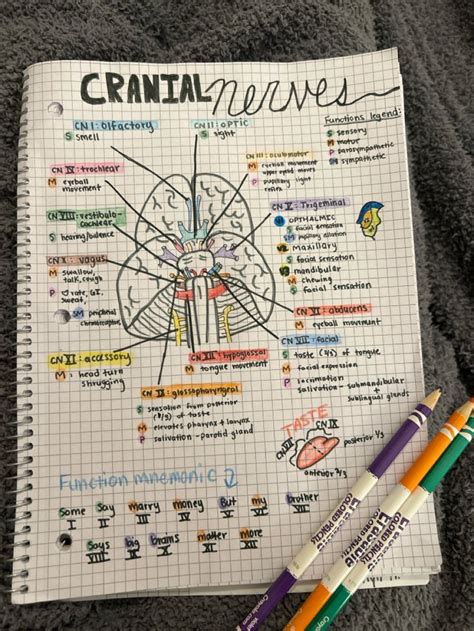 CRANIAL nerves
Functions legend:
S sensory
M motor
P parasympathetic
SM sympathetic
CN I: olfactory
S smell
CN II: OPTIC
S sight
CN III: oculomotor
M eyeball movement
upper eyelid moves
P pupillary light
reflex
CN IV: trochlear
M eyeball
movement
CN V: Trigeminal
V1 OPTHALMIC
S facial sensation
SM pupillary dilation
V2 maxillary
S facial sensation
V3 mandibular
M chewing
S facial sensation
CN VIII: vestibulo-
cochlear
S hearing/balance
CN X: vagus
M swallow,
talk, cough
P rate, GI,
sweat,
SM peripheral
CN VI: abducens
M eyeball movement
CN VII: facial
S taste (2/3) of tongue
M facial expression
P
salivation - submandibular +
sublingual glands
CN XI: accessory
M head turn
shrugging
CN XII: hypoglossal
M tongue movement
CN IX: glossopharyngeal
S sensation from posterior
(1/3) of taste
M elevates pharynx + larynx
P salivation - parotid gland
TASTE
CN IX
CN VII
posterior 1/3
anterior 2/3
Function mnemonic
Some Say marry money But my brother
I II III IV V VI VII
Says big brains matter more
VIII IX X XI XII
Crayola
COLORED PENCILS